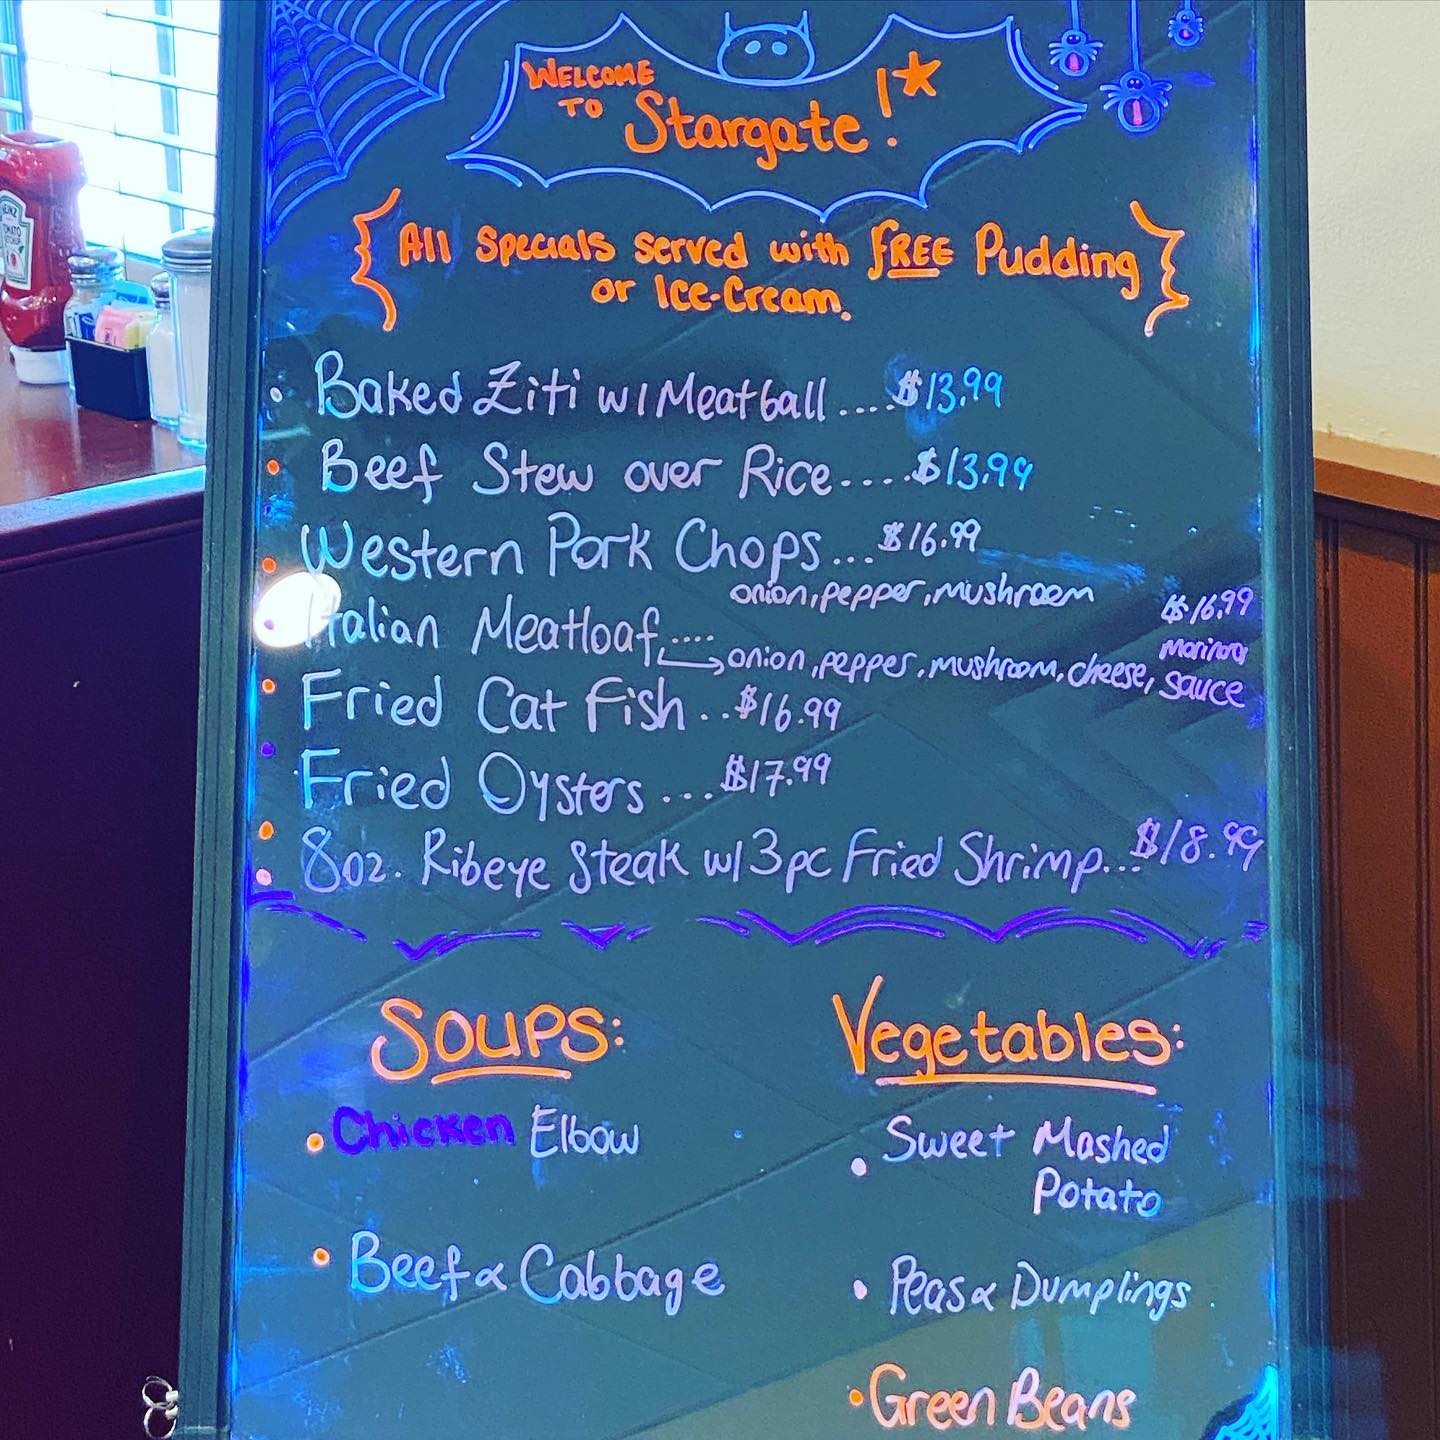 Welcome
to Stargate!*
All Specials served with FREE Pudding
or Ice-Cream.
• Baked Ziti w/ Meatball ....$13.99
• Beef Stew over Rice....$13.99
• Western Pork Chops...$16.99
onion, pepper, mushroom
• Italian Meatloaf.... $16.99
onion, pepper, mushroom, cheese, marinara sauce
• Fried Cat Fish..$16.99
• Fried Oysters ...$17.99
• 8oz. Ribeye Steak w/ 3pc Fried Shrimp...$18.99
Soups:
• Chicken Elbow
• Beef & Cabbage
Vegetables:
• Sweet Mashed
Potato
• Peas & Dumplings
• Green Beans
HEINZ
TOMATO
KETCHUP